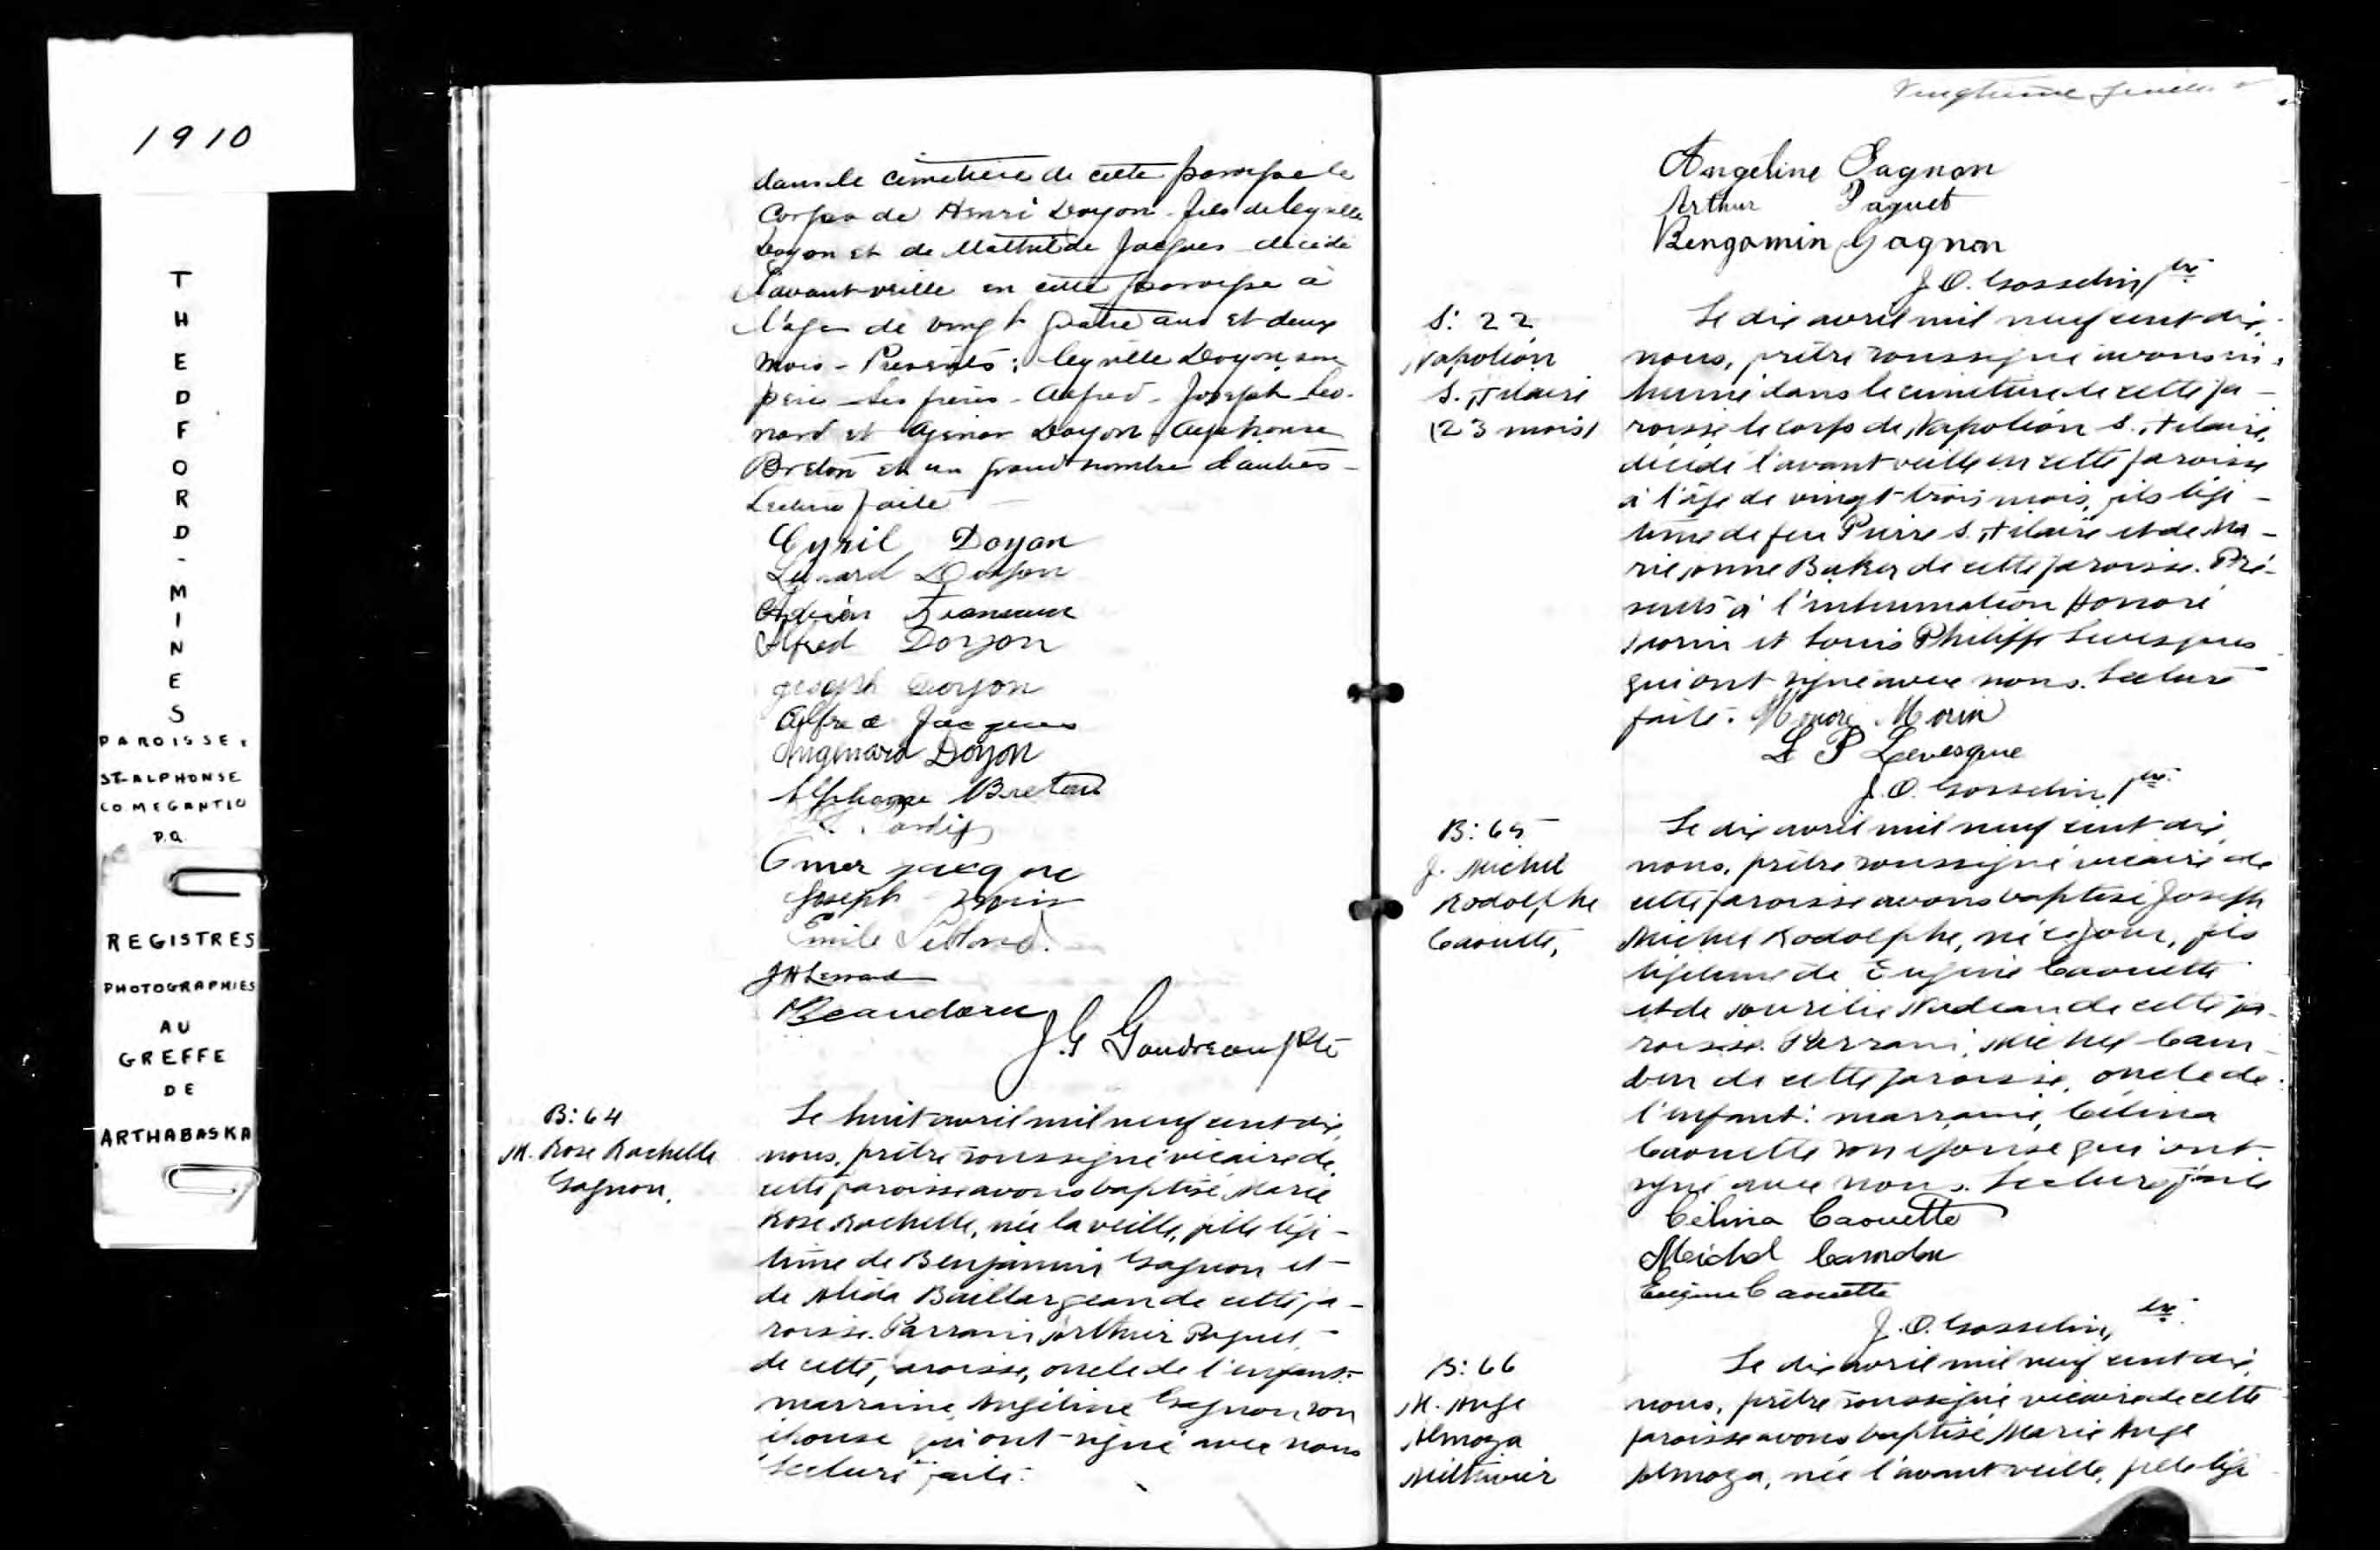 1910
THEDFORD-MINES
PAROISSE:
ST-ALPHONSE
CO MEGANTIC
P.Q.
REGISTRES
PHOTOGRAPHIES
AU
GREFFE
DE
ARTHABASKA
dans le cimetière de cette paroisse le
corps de Henri Doyon - fils de Cyrille
Doyon et de Mathilde Jacques décédé
l'avant-veille en cette paroisse à
l'age de vingt quatre ans et deux
mois - Présents: Cyrille Doyon, son
père - Ses frères - Alfred - Joseph Léo-
nard et Doyon, Alphonse
Breton et un grand nombre d'autres -
Lecture faite -
Cyril Doyon
Lénard Doyon
Adrien
Alfred Doyon
Joseph Doyon
Alfred Jacques
Doyon
Alphonse Breton
Omer Jacque
Joseph
Emile
J H
Beaudoin
J.G Goudreau ptre
B: 64
M. Rose Rachelle
Gagnon.
Le huit avril mil neuf cent dix,
nous, prêtre soussigné vicaire de
cette paroisse avons baptisé Marie
Rose Rachelle, née la veille, fille légi-
time de Benjamin Gagnon et
de Alida Baillargeon de cette pa-
roisse. Parrain Arthur Paquet
de cette paroisse, oncle de l'enfant:
marraine, Angéline Gagnon, son
épouse qui ont signé avec nous
Lecture faite.
Vingtième feuillet
Angeline Gagnon
Arthur Paquet
Bengamin Gagnon
J. O. Gosselin, ptre
S: 22
Napoléon
S. Hilaire
(23 mois)
Le dix avril mil neuf cent dix,
nous, prêtre soussigné avons in-
humé dans le cimetière de cette pa-
roisse le corps de Napoléon S. Hilaire,
décédé l'avant veille en cette paroisse
à l'âge de vingt-trois mois, fils légi-
time de feu Pierre S. Hilaire et de Ma-
rie Anne Baker de cette paroisse. Pré-
sents à l'inhumation Honoré
Morin et Louis Philippe Levesques
qui ont signé avec nous. Lecture
faite. Honoré Morin
L P Levesque
J. O. Gosselin, ptre
B: 65
J. Michel
Rodolphe
Caouette,
Le dix avril mil neuf cent dix,
nous, prêtre soussigné vicaire de
cette paroisse avons baptisé Joseph
Michel Rodolphe, né ce jour, fils
légitime de Eugène Caouette
et de Aurélie Nadeau de cette pa-
roisse. Parrain, Michel Cam-
den de cette paroisse, oncle de
l'enfant: marraine, Célina
Caouette son épouse qui ont
signé avec nous. Lecture faite
Célina Caouette
Michel Camden
Eugène Caouette
J. O. Gosselin, ptre
B: 66
M. Ange
Almoza
Methivier
Le dix avril mil neuf cent dix,
nous, prêtre soussigné vicaire de cette
paroisse avons baptisé Marie Ange
Almoza, née l'avant veille, fille légi